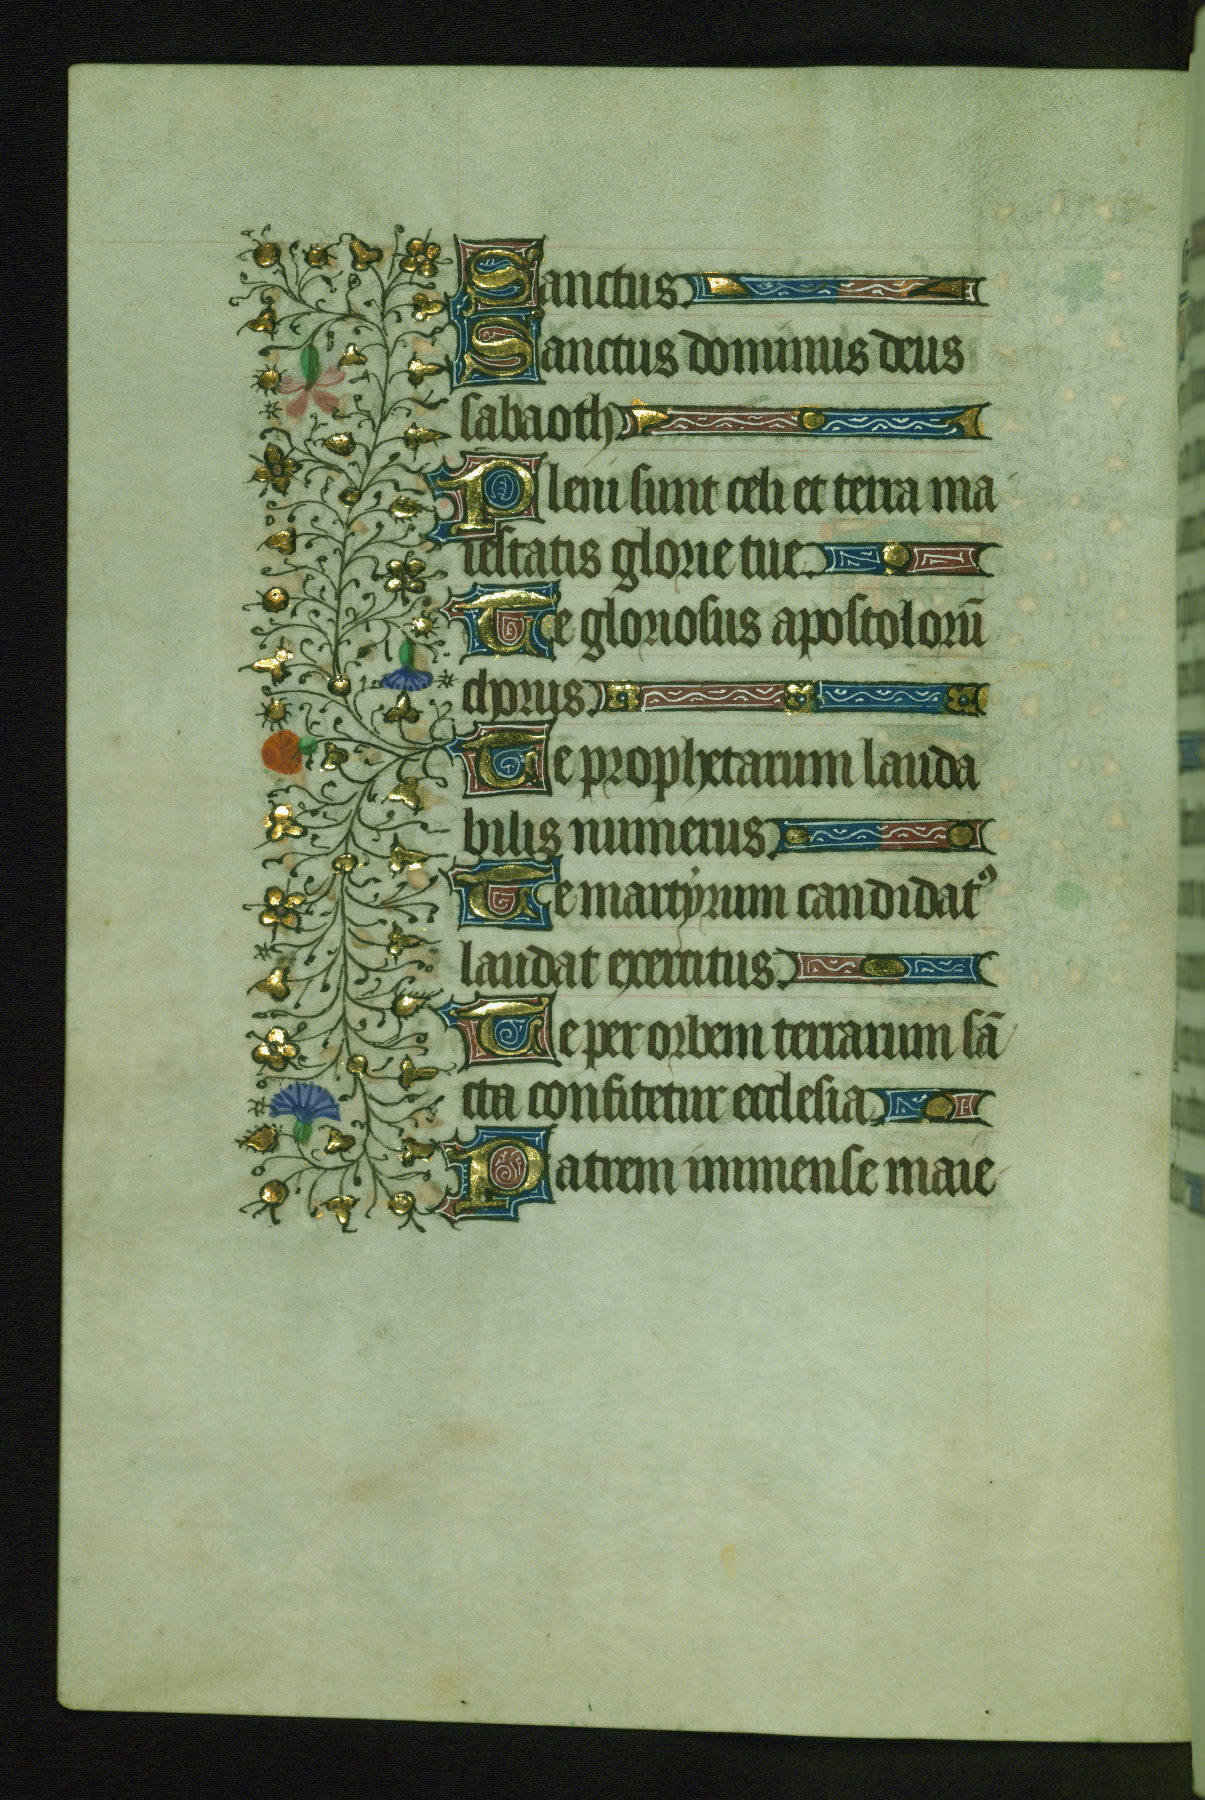 Sanctus
Sanctus dominus deus
sabaoth
Pleni sunt celi et terra ma
iestatis glorie tue.
Te gloriosus apostolorū
chorus
Te prophetarum lauda
bilis numerus
Te martyrum candidatꝰ
laudat exercitus
Te per orbem terrarum sā
cta confitetur ecclesia
Patrem immense maie